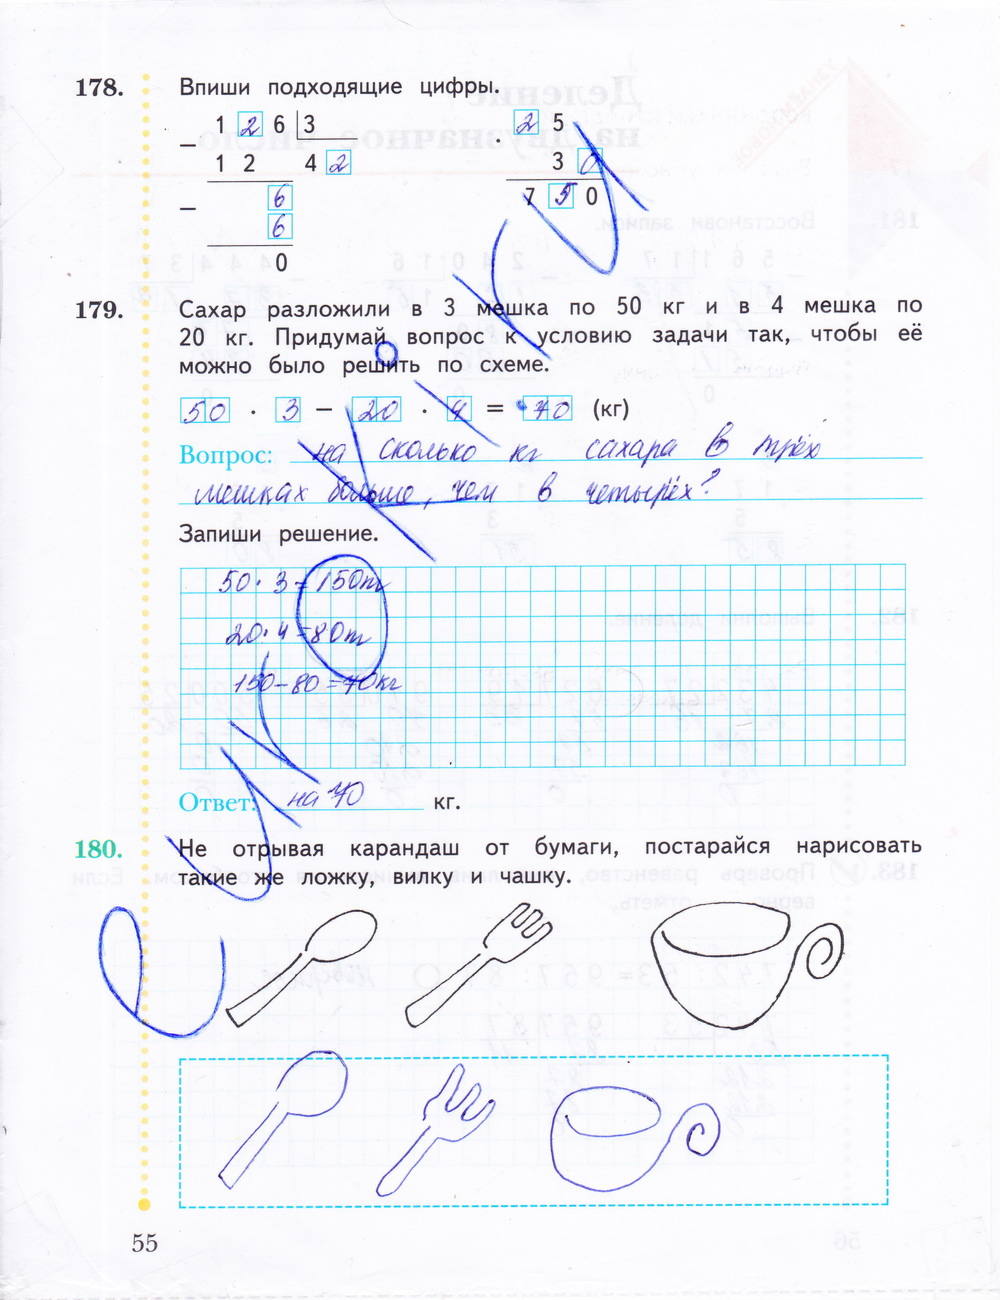 178. Впиши подходящие цифры.
1 2 6 3
1 2 4 2
6
6
0
2 5
3 0
7 5 0
179. Сахар разложили в 3 мешка по 50 кг и в 4 мешка по
20 кг. Придумай вопрос к условию задачи так, чтобы её
можно было решить по схеме.
50 · 3 − 20 · 4 = 70 (кг)
Вопрос: на сколько кг сахара в трёх
мешках больше, чем в четырёх?
Запиши решение.
50· 3 = 150т
20·4 =80т
150-80 =70кг
Ответ: на 70 кг.
180. Не отрывая карандаш от бумаги, постарайся нарисовать
такие же ложку, вилку и чашку.
55